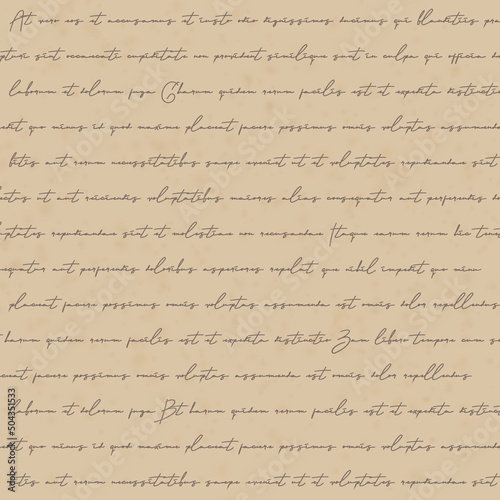 At vero eos et accusamus et iusto odio dignissimos ducimus qui blanditiis pra
pturi sint occaecati cupiditate non provident similique sunt in culpa qui officia de
laborum et dolorum fuga Charum quidem rerum facilis est et expedita distinctio
edit quo minus id quod maxime placeat facere possimus omnis voluptas assumenda
bitis aut rerum necessitatibus saepe eveniet ut et voluptates repudiandae sint et
ectus ut aut reiciendis voluptatibus maiores alias consequatur aut perferendis dol
luptates repudiandae sint et molestiae non recusandae Itaque earum rerum hic tene
sequatur aut perferendis doloribus asperiores repelat quo nihil impedit quo minu
placeat facere possimus omnis voluptas assumenda est omnis dolor repellendus
harum quidem rerum facilis est et expedita distinctio Zam libero tempore cum so
ceat facere possimus omnis voluptas assumenda est omnis dolor repellendus
laborum et dolorum fuga Bt harum quidem rerum facilis est et expedita distinct
dit quo minus id quod maxime placeat facere possimus omnis voluptas assumenda
bitis aut rerum necessitatibus saepe eveniet ut et voluptates repudiandae sint et
Adobe Stock | #504351533